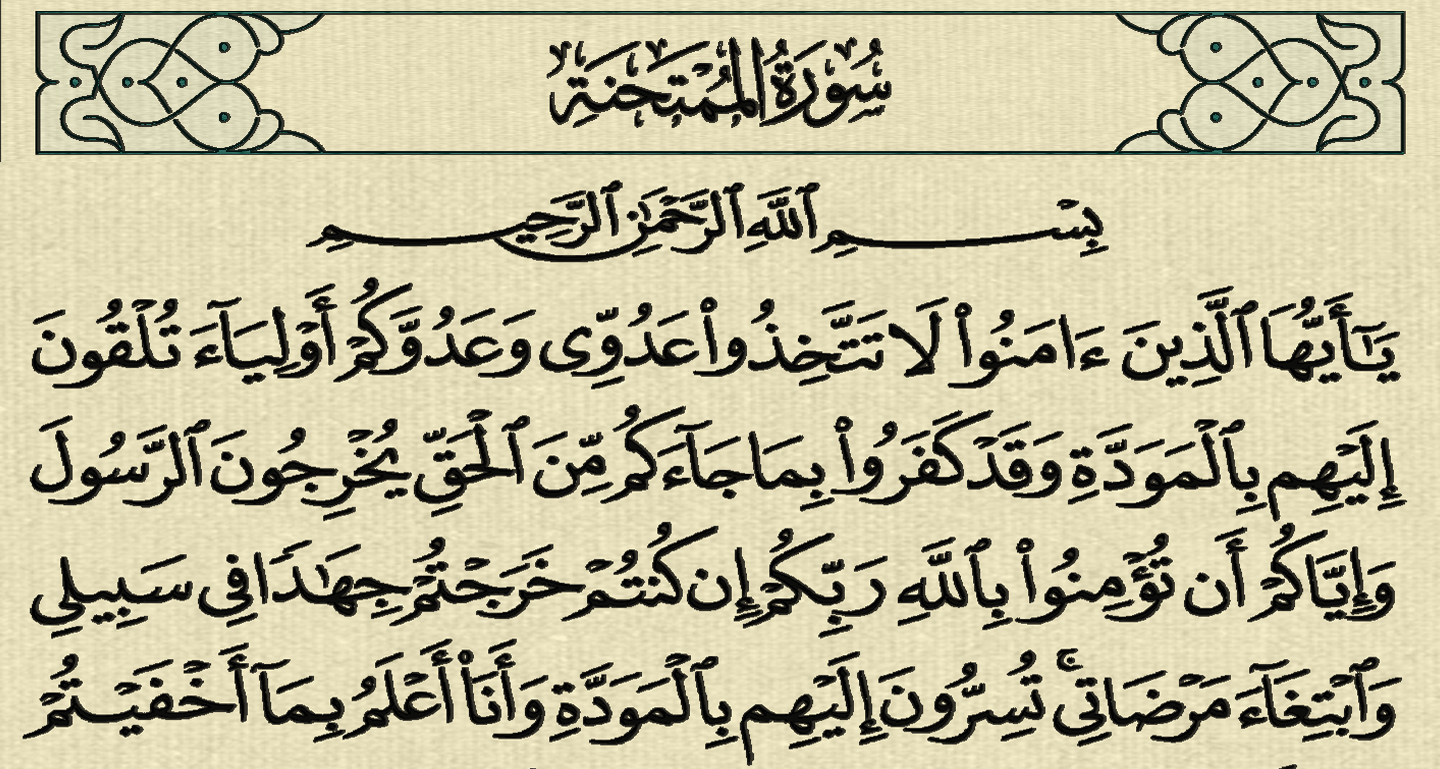 سُورَةُ الْمُمْتَحنَةِ
بِسْمِ ٱللَّهِ ٱلرَّحْمَٰنِ ٱلرَّحِيمِ
يَـٰٓأَيُّهَا ٱلَّذِينَ ءَامَنُوا۟ لَا تَتَّخِذُوا۟ عَدُوِّى وَعَدُوَّكُمْ أَوْلِيَآءَ تُلْقُونَ
إِلَيْهِم بِٱلْمَوَدَّةِ وَقَدْ كَفَرُوا۟ بِمَا جَآءَكُم مِّنَ ٱلْحَقِّ يُخْرِجُونَ ٱلرَّسُولَ
وَإِيَّاكُمْ أَن تُؤْمِنُوا۟ بِٱللَّهِ رَبِّكُمْ إِن كُنتُمْ خَرَجْتُمْ جِهَـٰدًا فِى سَبِيلِى
وَٱبْتِغَآءَ مَرْضَاتِى ۚ تُسِرُّونَ إِلَيْهِم بِٱلْمَوَدَّةِ وَأَنَا۠ أَعْلَمُ بِمَآ أَخْفَيْتُمْ